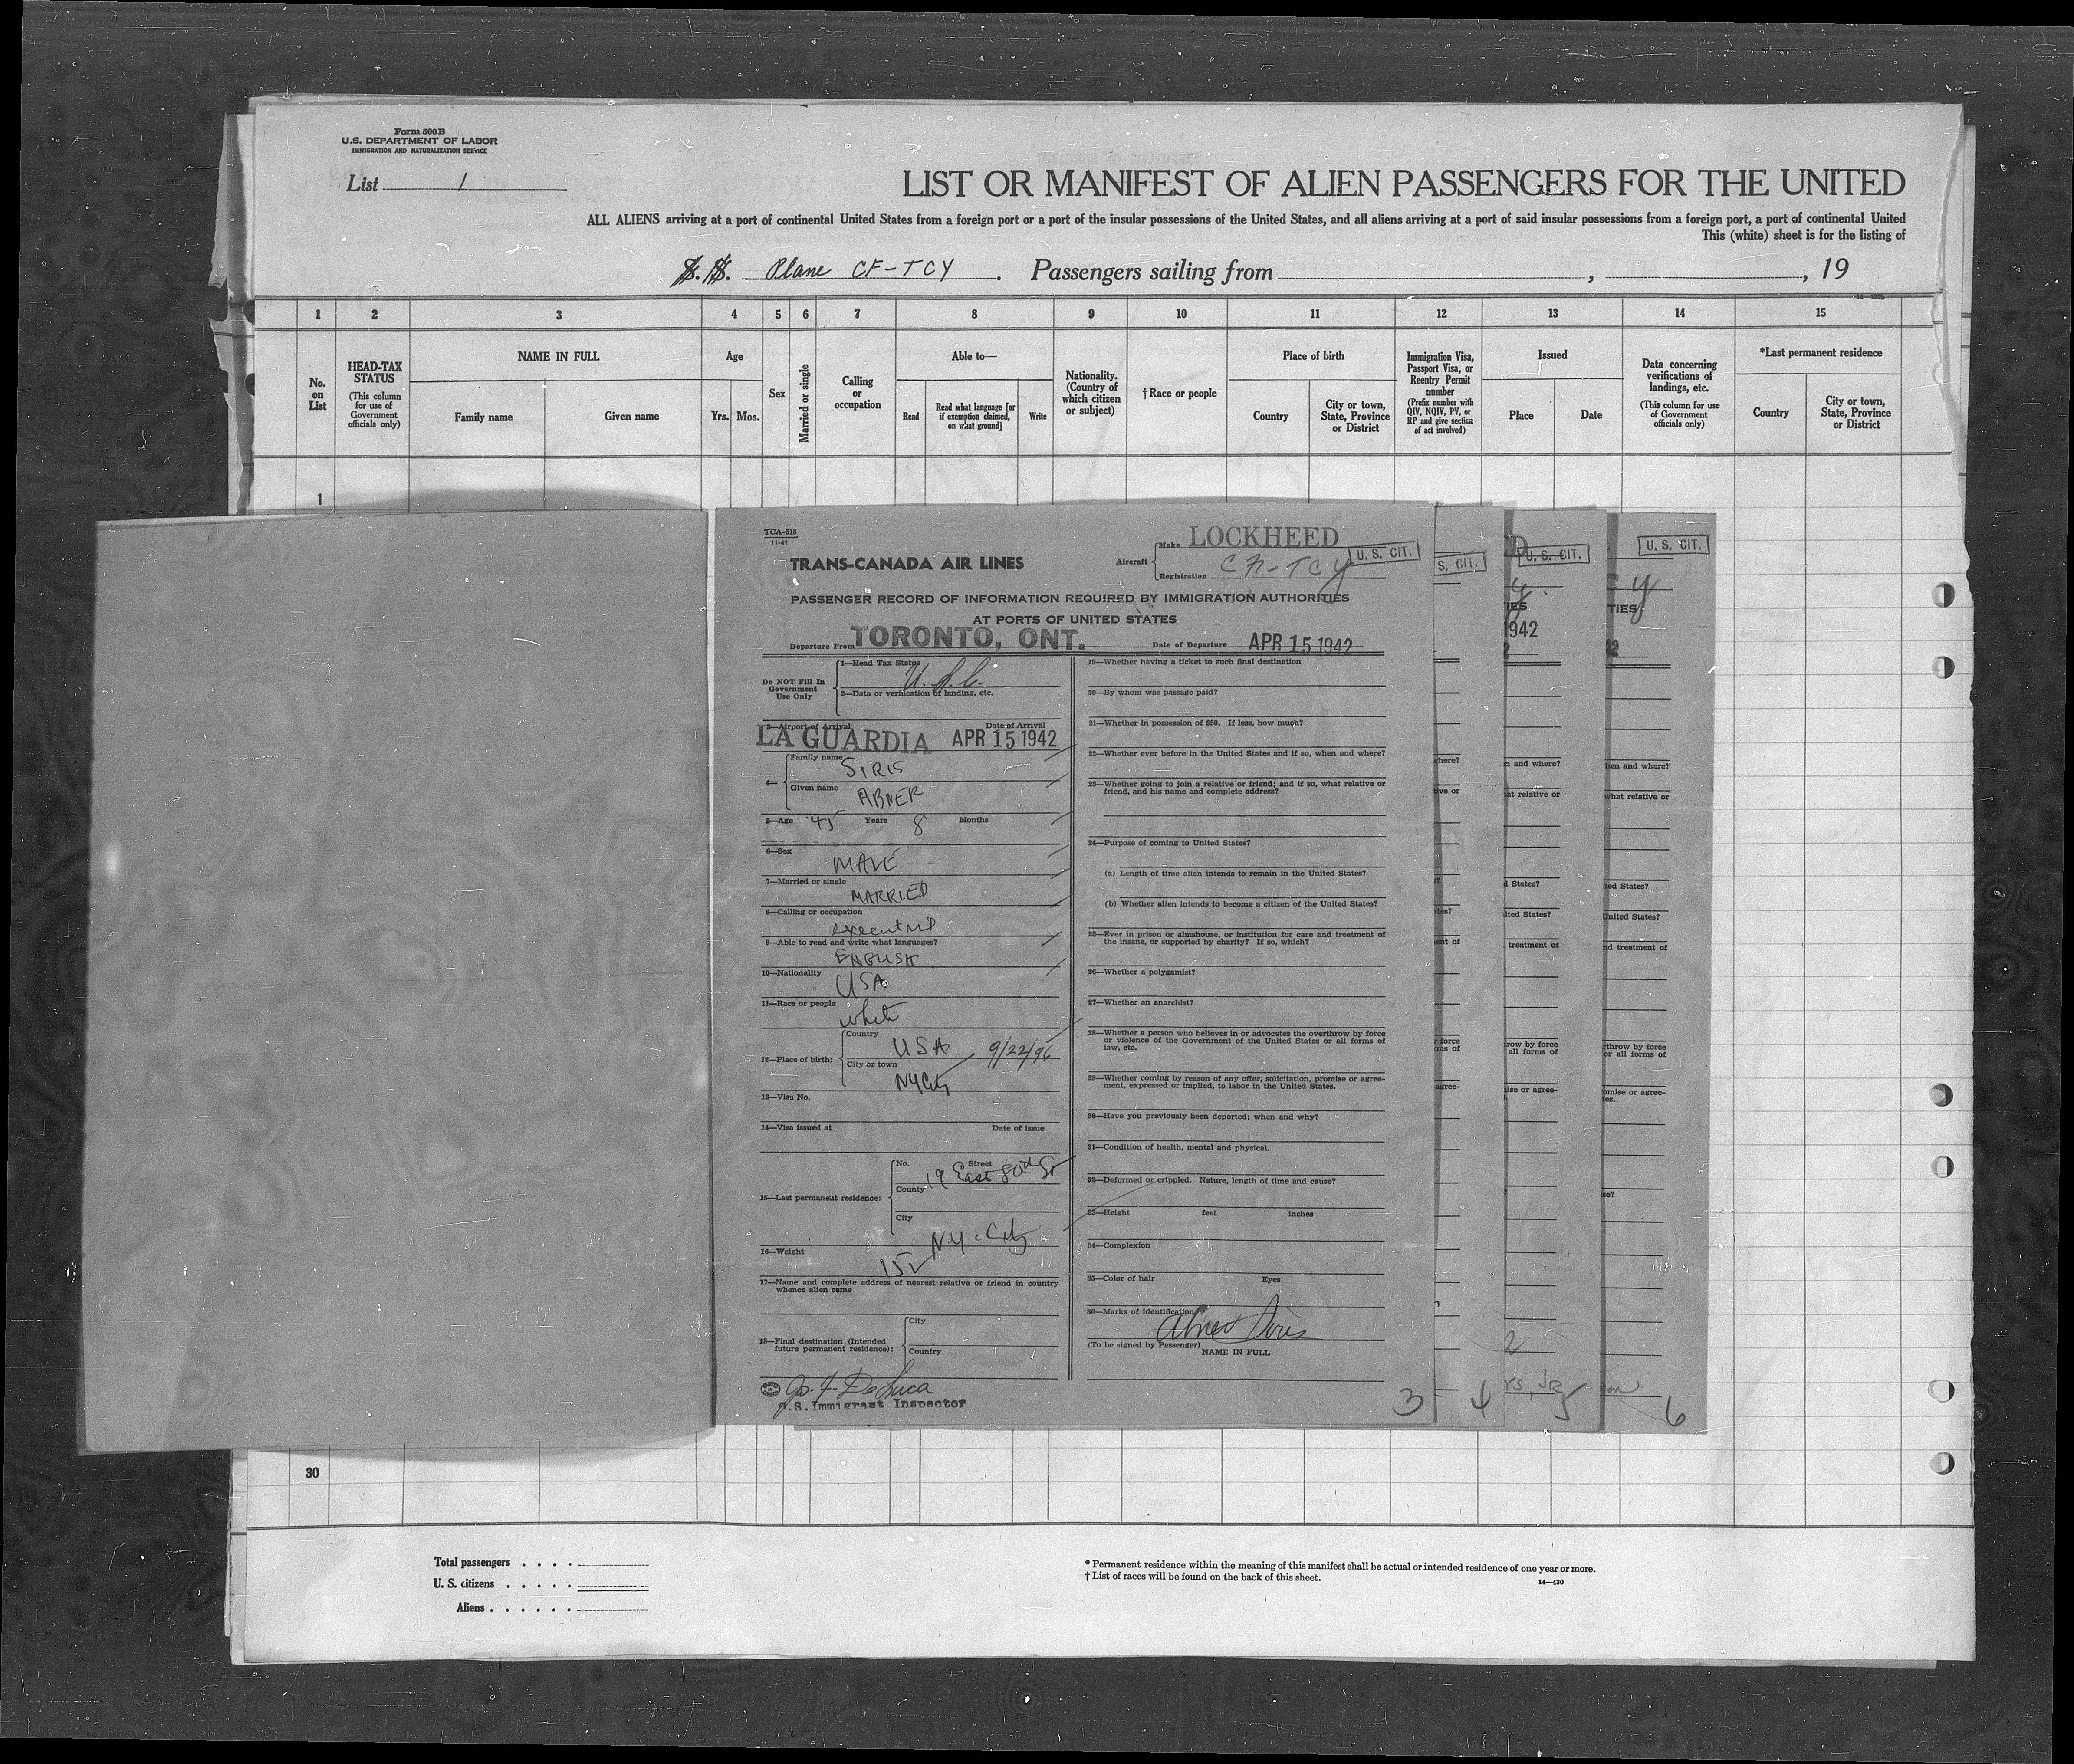 Form 500B
U.S. DEPARTMENT OF LABOR
IMMIGRATION AND NATURALIZATION SERVICE
List 1
LIST OR MANIFEST OF ALIEN PASSENGERS FOR THE UNITED
ALL ALIENS arriving at a port of continental United States from a foreign port or a port of the insular possessions of the United States, and all aliens arriving at a port of said insular possessions from a foreign port, a port of continental United
This (white) sheet is for the listing of
S. S. Plane CF-TCY. Passengers sailing from , , 19
1 2 3 4 5 6 7 8 9 10 11 12 13 14 15
No. on List
HEAD-TAX STATUS (This column for use of Government officials only)
NAME IN FULL
Family name Given name
Age
Yrs. Mos.
Sex
Married or single
Calling or occupation
Able to—
Read
Read what language [or if exemption claimed, on what ground]
Write
Nationality. (Country of which citizen or subject)
†Race or people
Place of birth
Country
City or town, State, Province or District
Immigration Visa, Passport Visa, or Reentry Permit number (Prefix number with QIV, NQIV, PV, or RP and give section of act involved)
Issued
Place Date
Data concerning verifications of landings, etc. (This column for use of Government officials only)
*Last permanent residence
Country
City or town, State, Province or District
1
TCA-518
11-41
TRANS-CANADA AIR LINES
Aircraft
Make LOCKHEED
Registration CF-TCY
U. S. CIT.
PASSENGER RECORD OF INFORMATION REQUIRED BY IMMIGRATION AUTHORITIES
AT PORTS OF UNITED STATES
Departure From TORONTO, ONT. Date of Departure APR 15 1942
Do NOT Fill In
Government
Use Only
1—Head Tax Status U.S.C.
2—Data or verification of landing, etc.
3—Airport of Arrival Date of Arrival
LA GUARDIA APR 15 1942
4
Family name SIRIS
Given name ABNER
5—Age 45 Years 8 Months
6—Sex
MALE
7—Married or single
MARRIED
8—Calling or occupation
executive
9—Able to read and write what languages?
ENGLISH
10—Nationality
USA
11—Race or people
white
12—Place of birth:
Country USA 9/22/96
City or town NYCity
13—Visa No.
14—Visa issued at Date of issue
15—Last permanent residence:
No. Street
19 East 80th St
County
City
N.Y. City
16—Weight
152
17—Name and complete address of nearest relative or friend in country
whence alien came
18—Final destination (Intended
future permanent residence):
City
Country
Jo. F. DeLuca
U.S. Immigrant Inspector
19—Whether having a ticket to such final destination
20—By whom was passage paid?
21—Whether in possession of $50. If less, how much?
22—Whether ever before in the United States and if so, when and where?
23—Whether going to join a relative or friend; and if so, what relative or
friend, and his name and complete address?
24—Purpose of coming to United States?
(a) Length of time alien intends to remain in the United States?
(b) Whether alien intends to become a citizen of the United States?
25—Ever in prison or almshouse, or institution for care and treatment of
the insane, or supported by charity? If so, which?
26—Whether a polygamist?
27—Whether an anarchist?
28—Whether a person who believes in or advocates the overthrow by force
or violence of the Government of the United States or all forms of
law, etc.
29—Whether coming by reason of any offer, solicitation, promise or agree-
ment, expressed or implied, to labor in the United States.
30—Have you previously been deported; when and why?
31—Condition of health, mental and physical.
32—Deformed or crippled. Nature, length of time and cause?
33—Height feet inches
34—Complexion
35—Color of hair Eyes
36—Marks of identification
Abner Siris
(To be signed by Passenger)
NAME IN FULL
3
S. CIT.
here?
tive or
ates?
ent of
force
ms of
agree-
4
U. S. CIT.
IES
1942
n and where?
at relative or
d States?
ited States?
treatment of
row by force
all forms of
ise or agree-
YS, JR
5
U. S. CIT.
y
TIES
hen and where?
what relative or
ted States?
United States?
nd treatment of
throw by force
or all forms of
omise or agree-
tes.
se?
6
30
Total passengers . . . .
U. S. citizens . . . . .
Aliens . . . . . .
* Permanent residence within the meaning of this manifest shall be actual or intended residence of one year or more.
† List of races will be found on the back of this sheet.
14—430